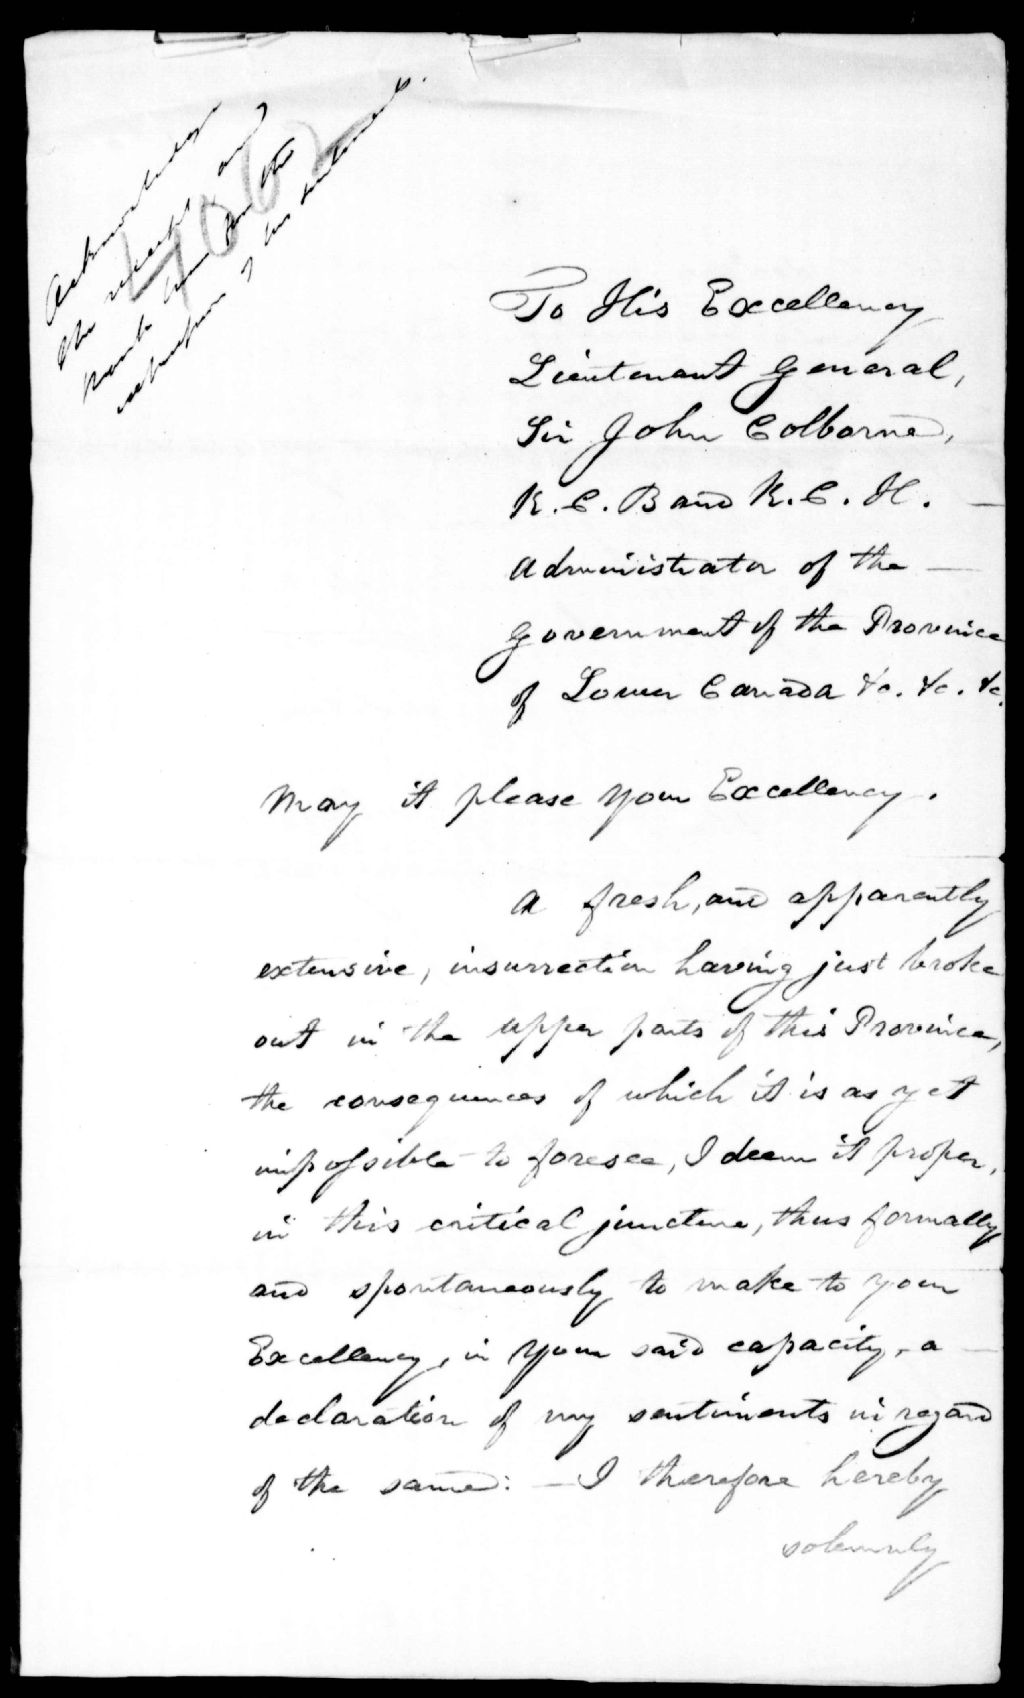 Acknowledge
the receipt and
thank him for the
of his sentiments.
4062
To His Excellency
Lieutenant General,
Sir John Colborne,
K. C. B and K. C. H. —
Administrator of the —
Government of the Province
of Lower Canada &c. &c. &c.
May it please your Excellency.
A fresh, and apparently
extensive, insurrection having just broke
out in the upper parts of this Province,
the consequences of which it is as yet
impossible to foresee, I deem it proper,
in this critical juncture, thus formally
and spontaneously to make to your
Excellency, in your said capacity, a —
declaration of my sentiments in regard
of the same: — I therefore hereby
solemnly